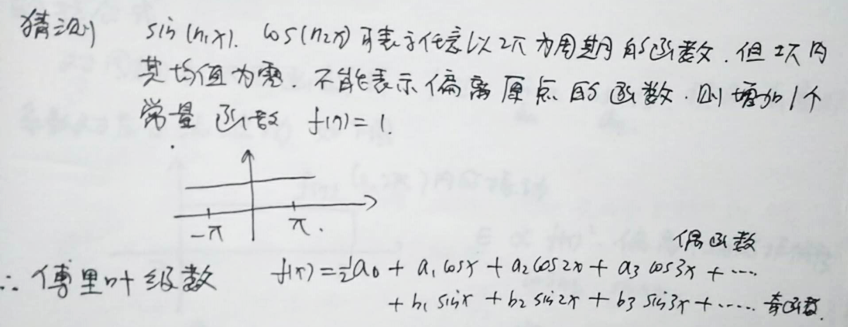 猜测 sin(n₁x). cos(n₂x) 可表示任意以2π为周期的函数. 但2π内
其均值为零. 不能表示偏离原点的函数. 则增加1个
常量函数 f(x)=1.
-π π.
偶函数
∴ 傅里叶级数 f(x)=½a₀ + a₁cosx + a₂cos2x + a₃cos3x + ……
+ b₁sinx + b₂sin2x + b₃sin3x + …… 奇函数.